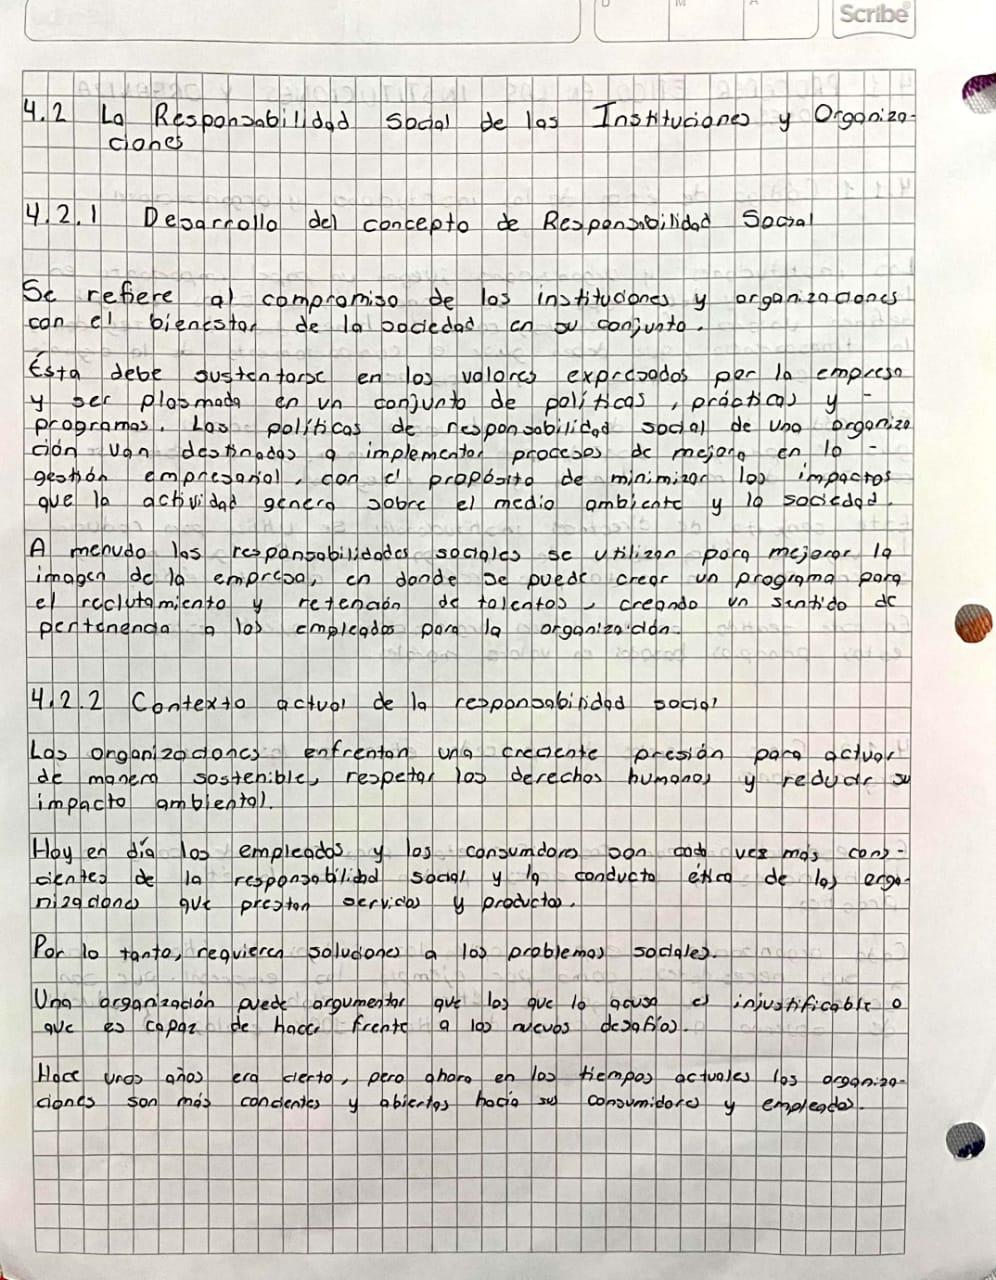 D M A
Scribe
4.2 La Responsabilidad Social de las Instituciones y Organiza-
ciones
4.2.1 Desarrollo del concepto de Responsabilidad Social
Se refiere al compromiso de las instituciones y organizaciones
con el bienestar de la sociedad en su conjunto.
Ésta debe sustentarse en los valores expresados por la empresa
y ser plasmada en un conjunto de políticas, prácticas y -
programas. Las políticas de responsabilidad social de una organiza
ción van destinadas a implementar procesos de mejora en la -
gestión empresarial, con el propósito de minimizar los impactos
que la actividad genera sobre el medio ambiente y la sociedad.
A menudo las responsabilidades sociales se utilizan para mejorar la
imagen de la empresa, en donde se puede crear un programa para
el reclutamiento y retención de talentos, creando un sentido de
pertenencia a los empleados para la organización.
4.2.2 Contexto actual de la responsabilidad social
Las organizaciones enfrentan una creciente presión para actuar
de manera sostenible, respetar los derechos humanos y reducir su
impacto ambiental.
Hoy en día los empleados y los consumidores son cada vez más cons-
cientes de la responsabilidad social y la conducta ética de las orga-
nizaciones que prestan servicios y productos.
Por lo tanto, requieren soluciones a los problemas sociales.
Una organización puede argumentar que los que lo acusa es injustificable o
que es capaz de hacer frente a los nuevos desafíos.
Hace unos años era cierto, pero ahora en los tiempos actuales las organiza-
ciones son más concientes y abiertas hacia sus consumidores y empleados.